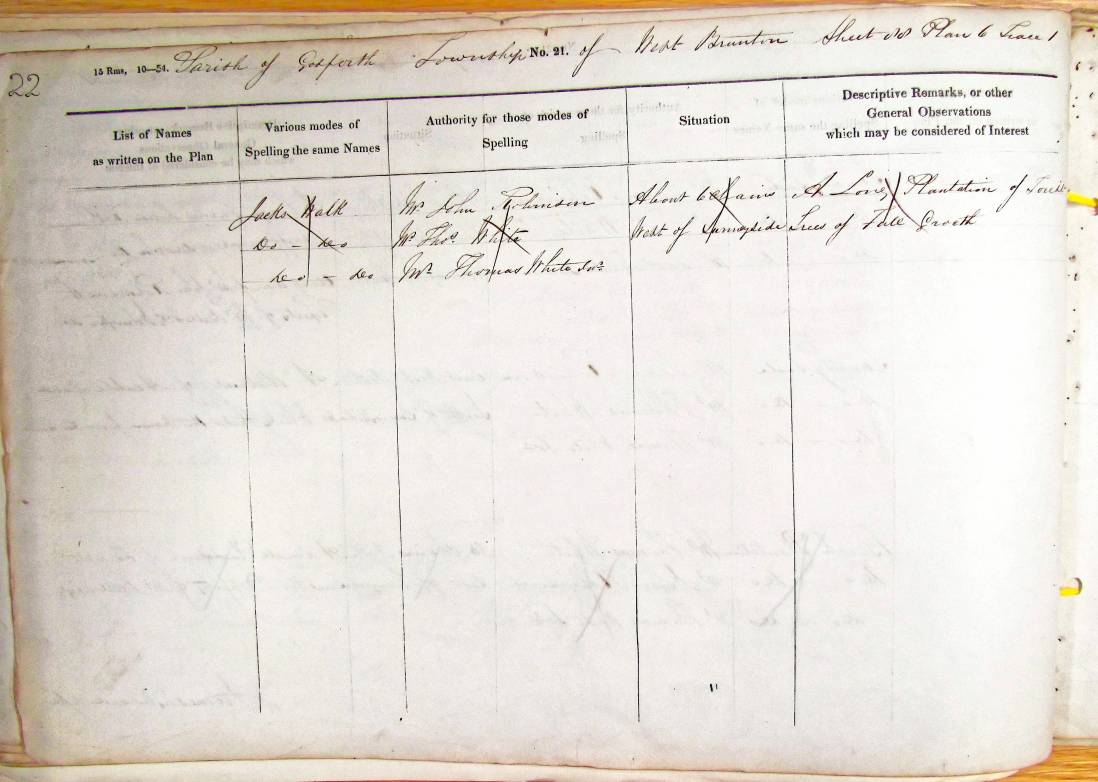 22
15 Rms, 10—54. Parish of Gosforth Township No. 21. of West Brunton Sheet 88 Plan 6 Trace 1
List of Names
as written on the Plan
Various modes of
Spelling the same Names
Authority for those modes of
Spelling
Situation
Descriptive Remarks, or other
General Observations
which may be considered of Interest
Jacks Walk Mr John Robinson About 60 Chains A Long Plantation of Forest
Do - do Mr Thos White West of Sunnyside Trees of Tall Growth
do - do Mr Thomas White